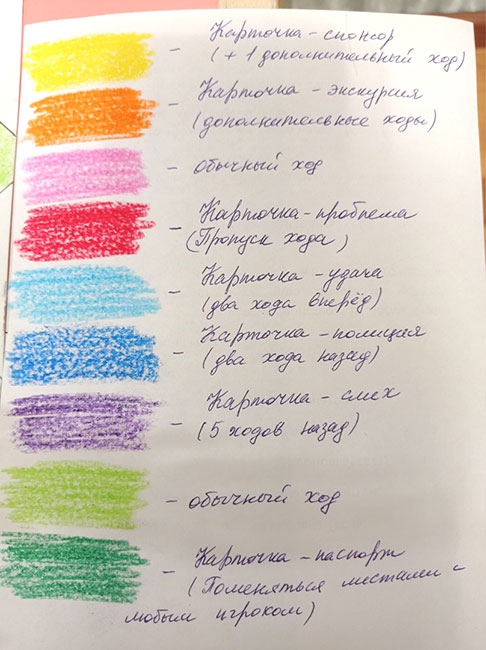 – Карточка – спонсор
(+ 1 дополнительный ход)
– Карточка – экскурсия
(дополнительные ходы)
– обычный ход
– Карточка – проблема
(Пропуск хода)
– Карточка – удача
(два хода вперёд)
– Карточка – полиция
(два хода назад)
– Карточка – смех
(5 ходов назад)
– обычный ход
– Карточка – паспорт
(Поменяться местами с
любым игроком)